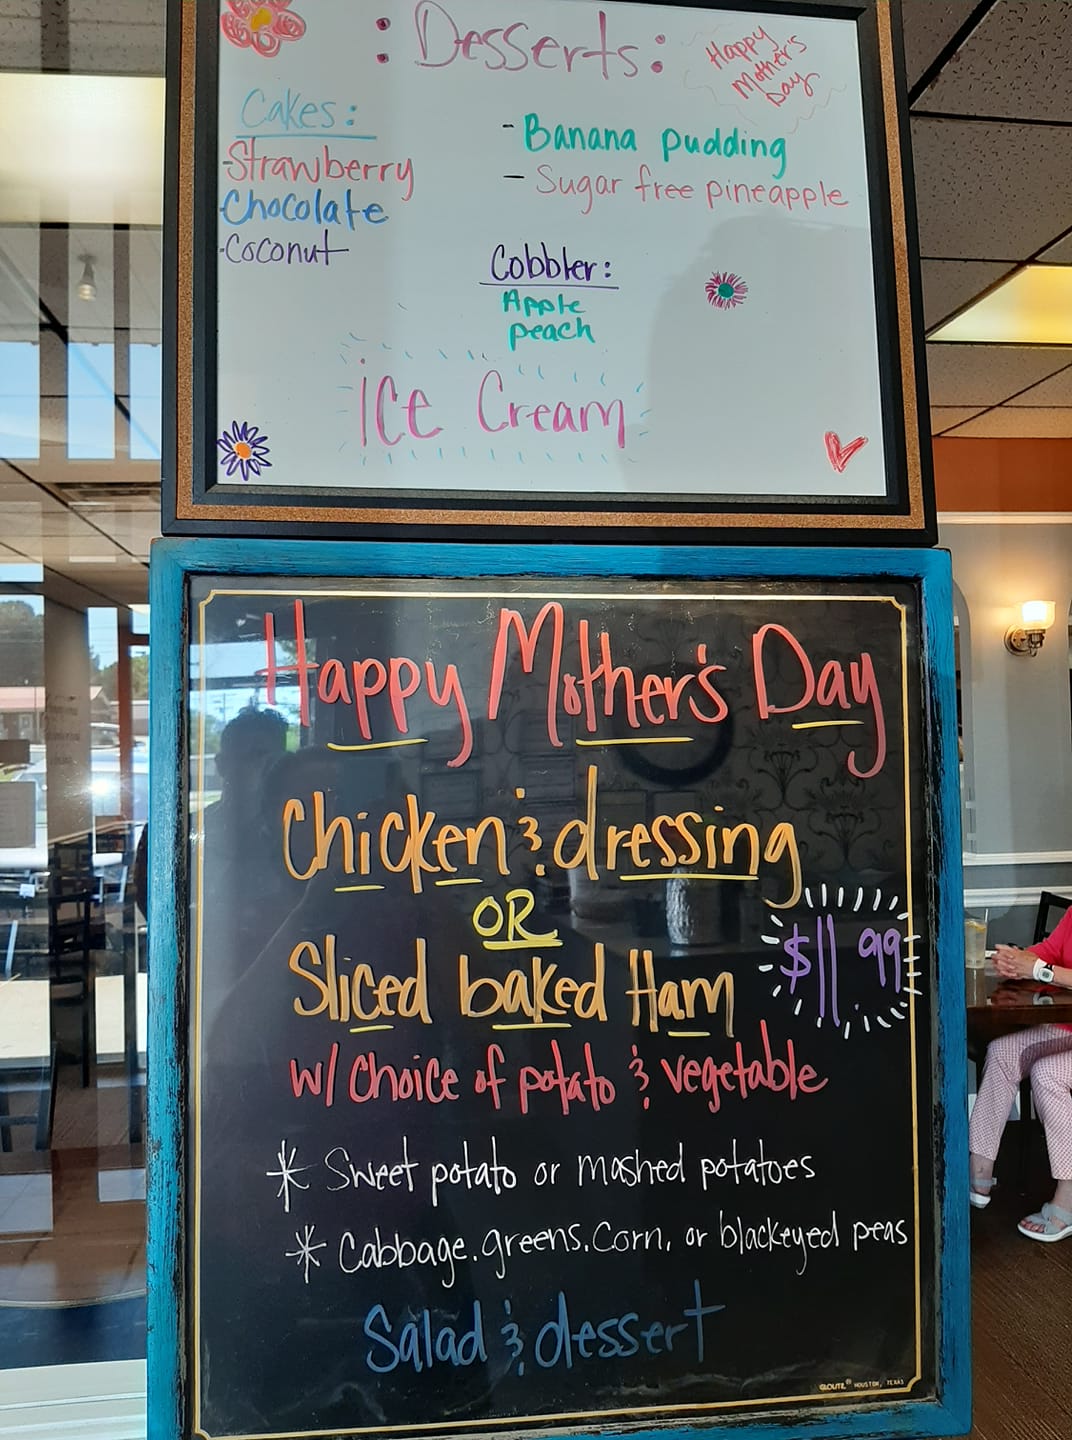 : Desserts:
Happy
Mother's
Day
Cakes:
-Strawberry
-Chocolate
-Coconut
- Banana pudding
- Sugar free pineapple
Cobbler:
Apple
peach
ice Cream
Happy Mother's Day
Chicken & dressing
OR
Sliced baked Ham
$11.99
w/ choice of potato & vegetable
* Sweet potato or mashed potatoes
* Cabbage, greens, Corn, or blackeyed peas
Salad & dessert
GLOLITE® HOUSTON, TEXAS